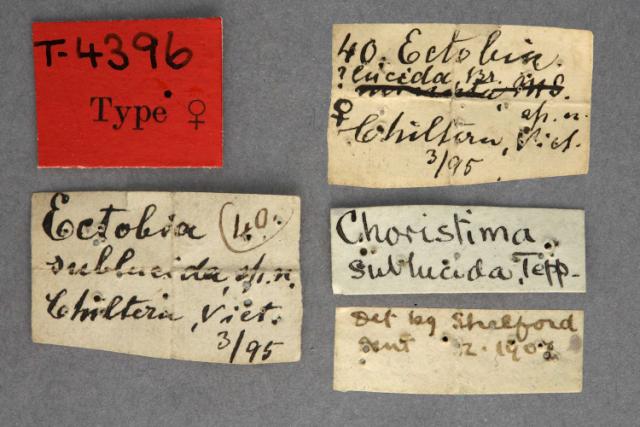 T-4396
Type ♀
40. Ectobia
? lucida, Br.
♀ sp. n.
Chiltern, Vict.
3/95
Ectobia (40.)
sublucida, sp. n.
Chiltern, Vict.
3/95
Choristima
sublucida, Tepp.
Det by Shelford
2.190